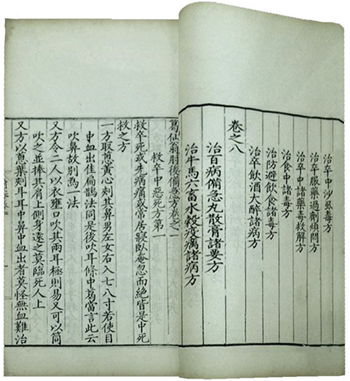 治卒中沙虱毒方
治卒服藥過劑煩悶方
治卒中諸藥毒救解方
治食中諸毒方
治防避飲食諸毒方
治卒飲酒大醉諸病方
卷之八
治百病備急丸散膏諸要方
治牛馬六畜水穀疫癘諸病方
葛仙翁肘後備急方卷之一
救卒中惡死方第一
救卒死或先病痛或常居寢臥奄忽而絕皆是中死
救之方
一方取葱黃心刺其鼻男左女右入七八寸若使目
中血出佳扁鵲法同是後吹耳條中葛當言此云
吹鼻故別為一法
又方令二人以衣壅口吹其兩耳極則易又可以筒
吹之並捧其肩上側身遠之莫臨死人上
又方以葱葉刺耳耳中鼻中血出者莫怪無血難治